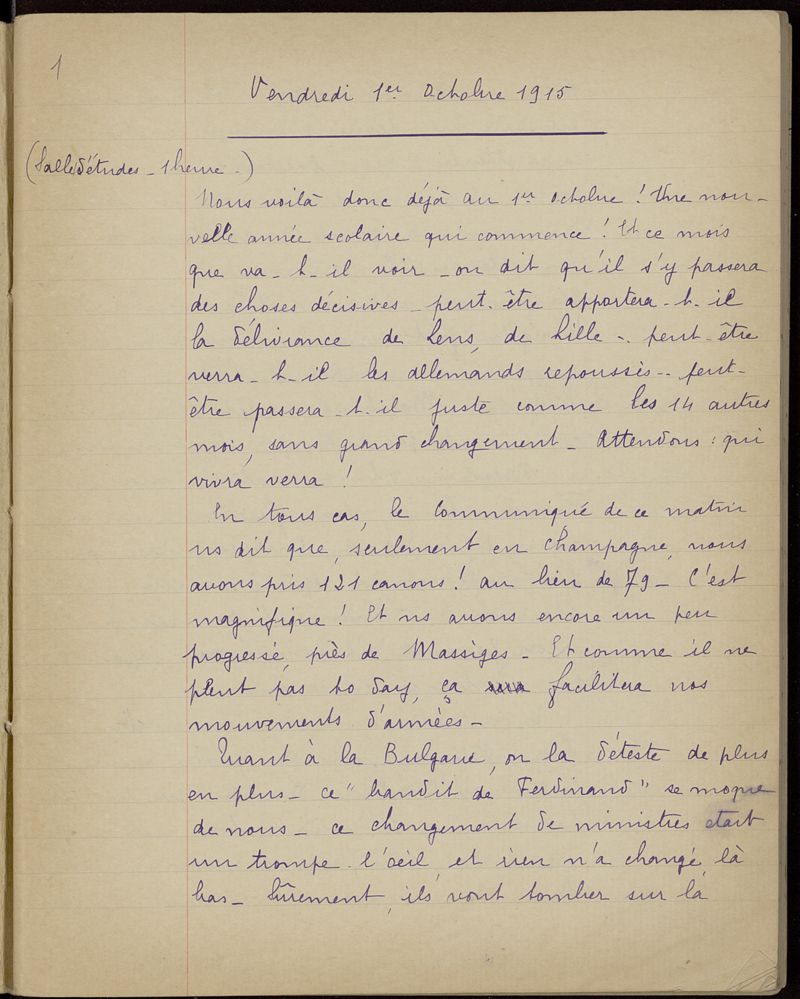 1
Vendredi 1er Octobre 1915
(Salle d'études - 1 heure -)
Nous voilà donc déjà au 1er octobre ! Une nou-
velle année scolaire qui commence ! Et ce mois
que va-t-il voir - on dit qu'il s'y passera
des choses décisives - peut-être apportera-t-il
la délivrance de Lens, de Lille -. peut-être
verra-t-il les allemands repoussés -. peut-
être passera-t-il juste comme les 14 autres
mois, sans grand changement - Attendons : qui
vivra verra !
En tous cas, le Communiqué de ce matin
ns dit que, seulement en Champagne, nous
avons pris 121 canons ! au lieu de 79 - C'est
magnifique ! Et ns avons encore un peu
progressé, près de Massiges - Et comme il ne
pleut pas to day, ça facilitera nos
mouvements d'armées -
Quant à la Bulgarie, on la déteste de plus
en plus - ce "bandit de Ferdinand" se moque
de nous - ce changement de ministres était
un trompe-l'oeil, et rien n'a changé, là
bas - Sûrement, ils vont tomber sur la